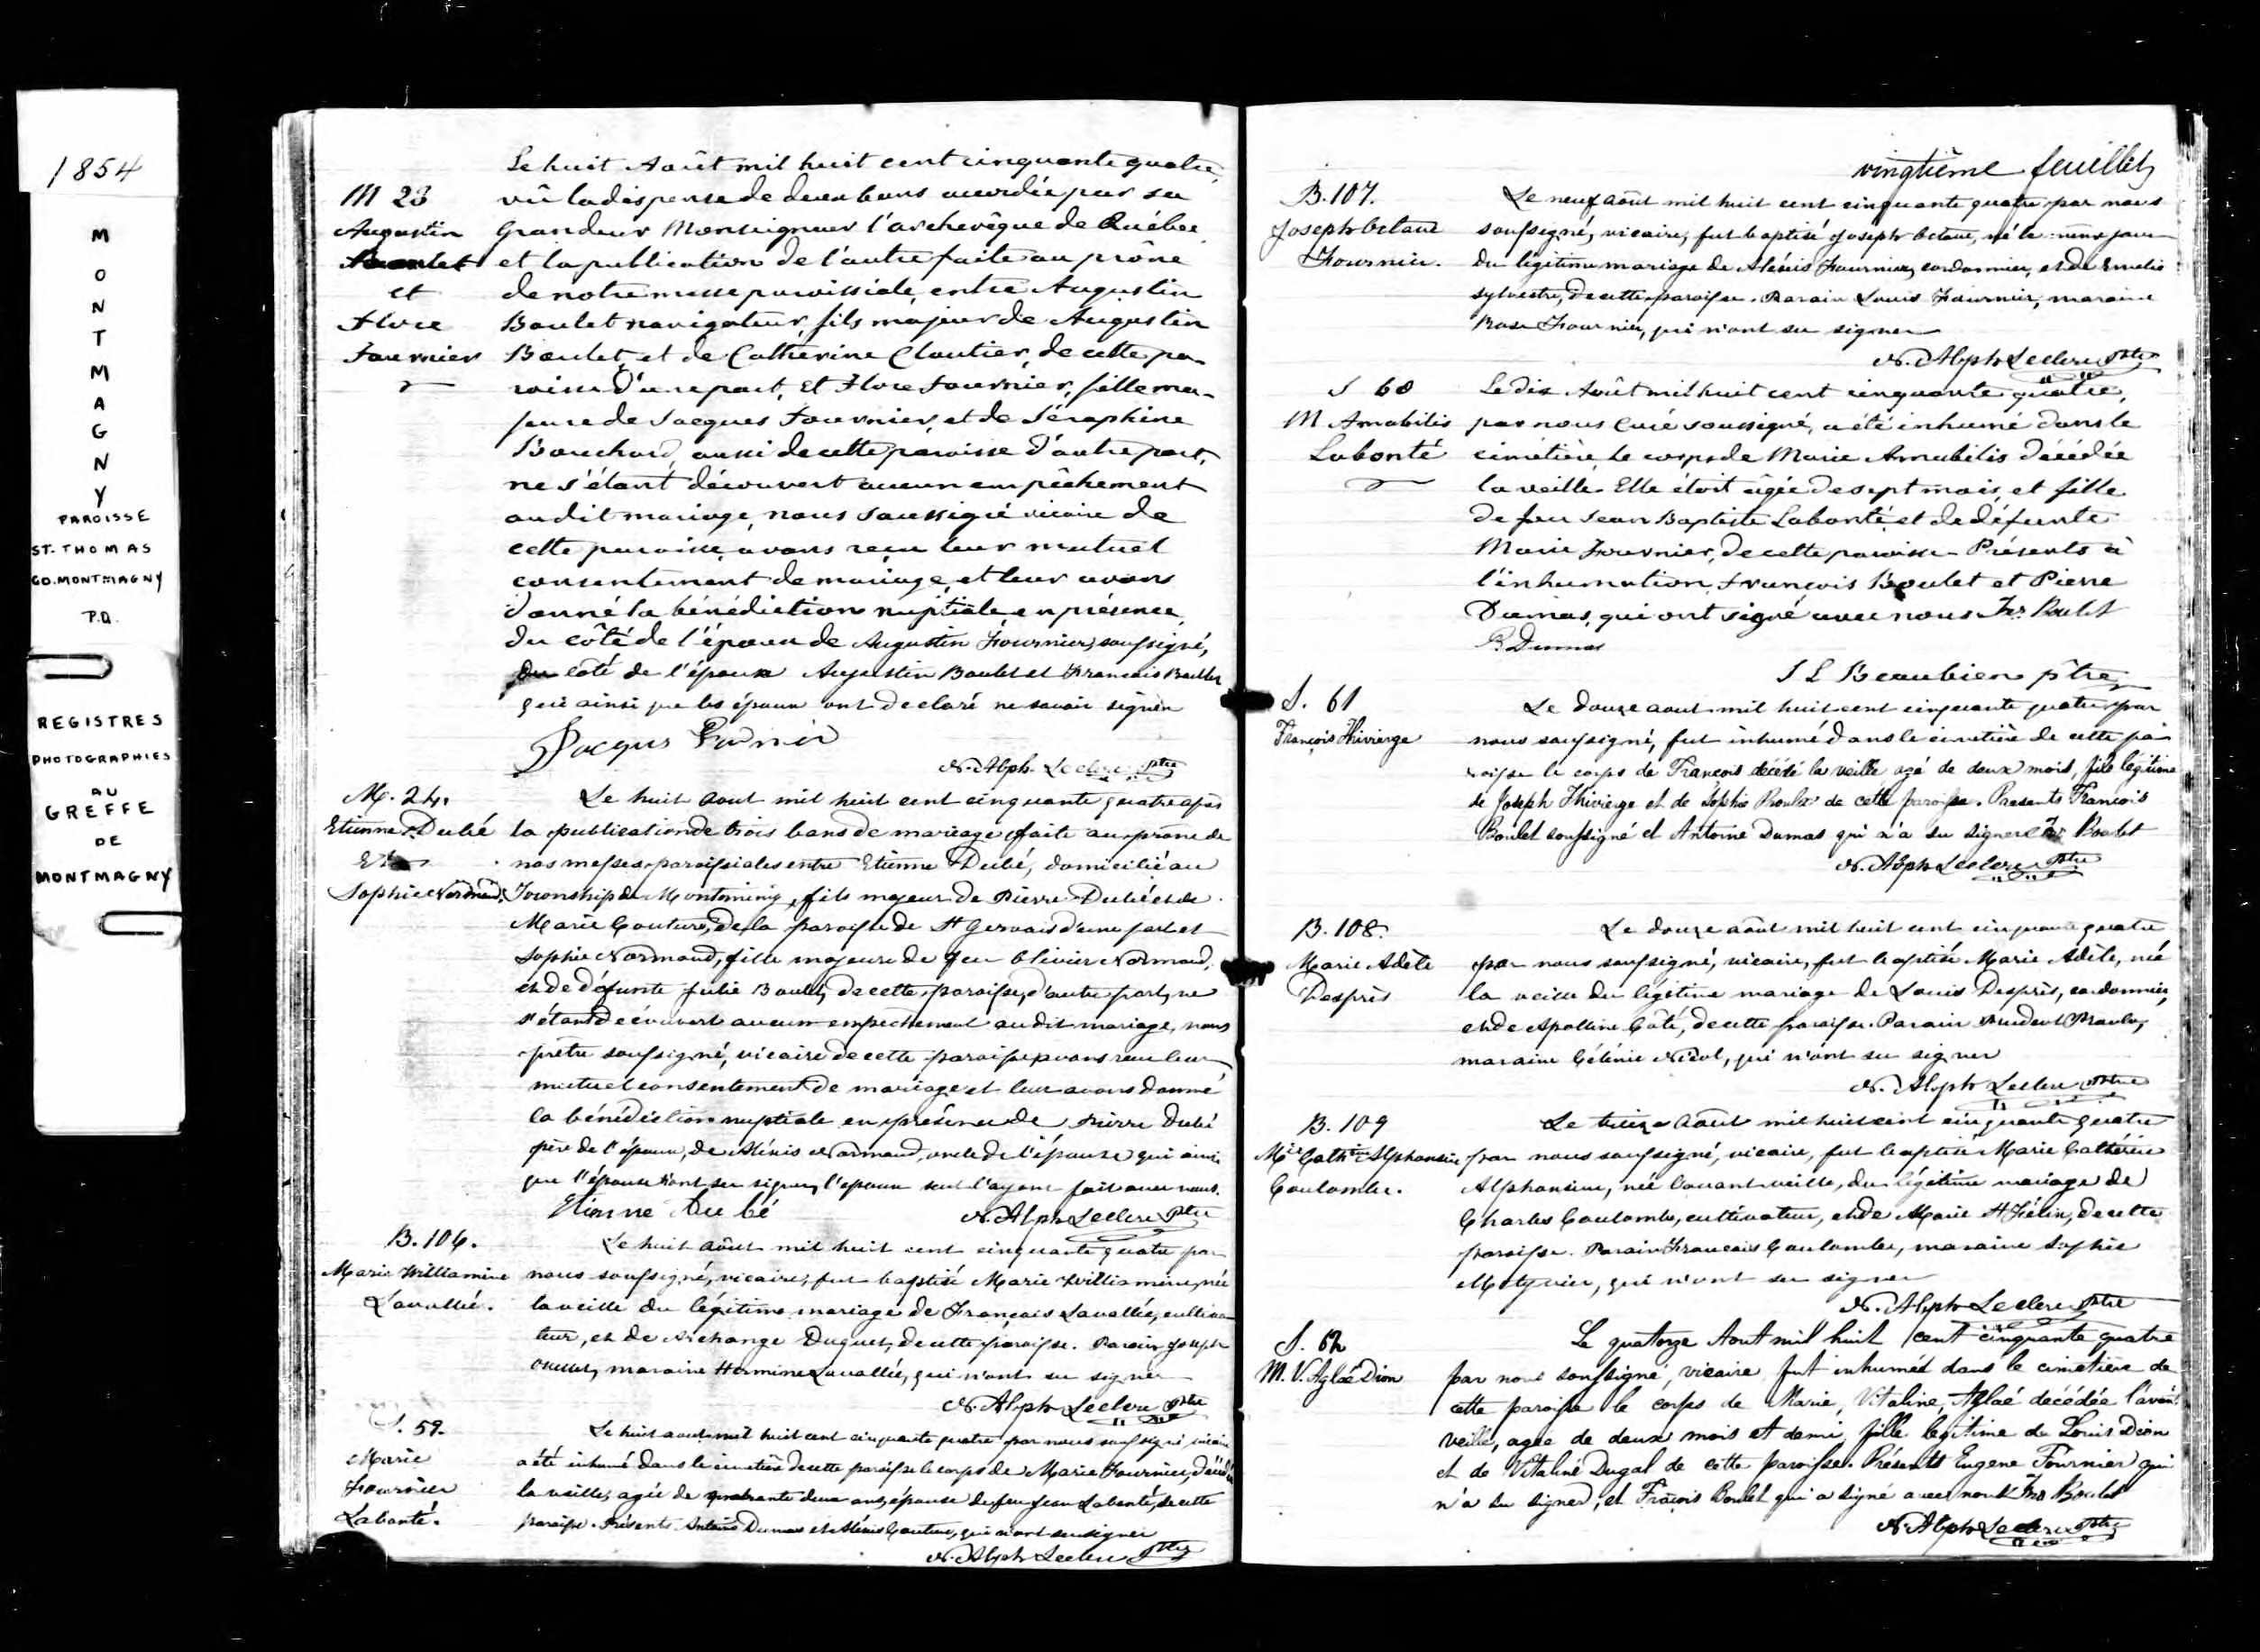 1854
MONTMAGNY
PAROISSE
ST. THOMAS
CO. MONTMAGNY
P.Q.
REGISTRES
PHOTOGRAPHIES
AU
GREFFE
DE
MONTMAGNY
M 23
Augustin
Boulet
et
Flore
Fournier
Le huit Août mil huit cent cinquante quatre,
vû la dispense de deux bans accordée par sa
Grandeur Monseigneur l'archevêque de Québec
et la publication de l'autre faite au prône
de notre messe paroissiale, entre Augustin
Boulet navigateur, fils majeur de Augustin
Boulet, et de Catherine Cloutier, de cette pa-
roisse d'une part, et Flore Fournier, fille ma-
jeure de Jacques Fournier, et de Séraphine
Bouchard, aussi de cette paroisse d'autre part,
ne s'étant découvert aucun empêchement
au dit mariage, nous soussigné vicaire de
cette paroisse, avons reçu leur mutuel
consentement de mariage, et leur avons
donné la bénédiction nuptiale en présence,
du côté de l'époux de Augustin Fournier, soussigné,
du côté de l'époux Augustin Boulet et François Boulet
qui ainsi que les époux ont declaré ne savoir signer
Jacques
N. Alph. Leclerc Ptre
M. 24.
Etienne Dubé
Et
Sophie Normand
Le huit aout mil huit cent cinquante quatre après
la publication de trois bans de mariage faite au prône de
nos messes paroissiales entre Etienne Dubé, domicilié au
Township de Montminy, fils majeur de Pierre Dubé et de
Marie Couture, de la paroisse de St Gervais d'une part et
Sophie Normand, fille majeure de feu Olivier Normand,
et de défunte Julie Boulet, de cette paroisse, d'autre part, ne
s'étant découvert aucun empêchement au dit mariage, nous
prêtre soussigné, vicaire de cette paroisse, avons reçu leur
mutuel consentement de mariage et leur avons donné
la bénédiction nuptiale en présence de Pierre Dubé
père de l'époux, de Alexis Normand, oncle de l'épouse qui ainsi
que l'épouse n'ont su signer, l'époux seul l'ayant fait avec nous.
Etienne Du bé
N. Alph Leclerc Ptre
B. 106.
Marie Willamine
Lavallée.
Le huit août mil huit cent cinquante quatre par
nous soussigné, vicaire, fut baptisé Marie Williamine, née
la veille du légitime mariage de François Lavallée, cultiva
teur, et de Archange Duguet, de cette paroisse. Parain Joseph
Ouellet, maraine Hermine Lavallée, qui n'ont su signer
N. Alph Leclerc Ptre
S. 59.
Marie
Fournier
Labonté.
Le huit aout mil huit cent cinquante quatre par nous soussigné vicaire
a été inhumé dans le cimetière de cette paroisse le corps de Marie Fournier, décédée
la veille, agée de quarante deux ans, épouse de feu Jean Labonté, de cette
paroisse. Présents Antoine Dumas et Alexis Couture, qui n'ont su signer
N. Alph Leclerc Ptre
vingtième feuillet
B. 107.
Joseph Octave
Fournier.
Le neuf août mil huit cent cinquante quatre par nous
soussigné, vicaire, fut baptisé Joseph Octave, né le même jour
du légitime mariage de Alexis Fournier, cordonnier, et de Emelie
Sylvestre, de cette paroisse. Parain Louis Fournier, maraine
Rose Fournier, qui n'ont su signer
N. Alph Leclerc Ptre
S 60
M Amabilis
Labonté
Le dix Août mil huit cent cinquante quatre,
par nous Curé soussigné, a été inhumé dans le
cimétière, le corps de Marie Amabilis décédée
la veille. Elle étoit âgée de sept mois, et fille
de feu Jean Baptiste Labonté, et de défunte
Marie Fournier, de cette paroisse. Présents à
l'inhumation, François Boulet et Pierre
Dumas, qui ont signé avec nous Frs Boulet
P. Dumas
J L Beaubien ptre
S. 61
François Thivierge
Le douze aout mil huit cent cinquante quatre par
nous soussigné, fut inhumé dans le cimetière de cette pa
roisse le corps de François décédé la veille agé de deux mois, fils légitime
de Joseph Thivierge et de Sophie Proulx de cette paroisse. Presents François
Boulet soussigné et Antoine Dumas qui n'a su signer Frs Boulet
N. Alph Leclerc Ptre
B. 108.
Marie Adèle
Desprès
Le douze août mil huit cent cinquante quatre
par nous soussigné, vicaire, fut baptisé Marie Adèle, née
la veille du légitime mariage de Louis Desprès, cordonnier,
et de Apolline Côté, de cette paroisse. Parain Prudent Proulx,
maraine Célénie Nicol, qui n'ont su signer
N. Alph Leclerc Ptre
B. 109
Mie Cathine Alphonsine
Coulombe.
Le treize Août mil huit cent cinquante quatre
par nous soussigné, vicaire, fut baptisé Marie Cathérine
Alphonsine, née l'avant veille, du légitime mariage de
Charles Coulombe, cultivateur, et de Marie de cette
paroisse. Parain François Coulombe, maraine Sophie
qui n'ont su signer
N. Alph Leclerc Ptre
S. 62
M. V. Aglaé Dion
Le quatorze Aout mil huit cent cinquante quatre
par nous soussigné, vicaire fut inhumée dans le cimetière de
cette paroisse le corps de Marie, Vitaline, Aglaé décédée l'avant
veille, agée de deux mois et demi, fille legitime de Louis Dion
et de Vitaline Dugal de cette paroisse. Présents Eugene Fournier qui
n'a su signer, et François Boulet qui a signé avec nous Frs Boulet
N. Alph Leclerc Ptre